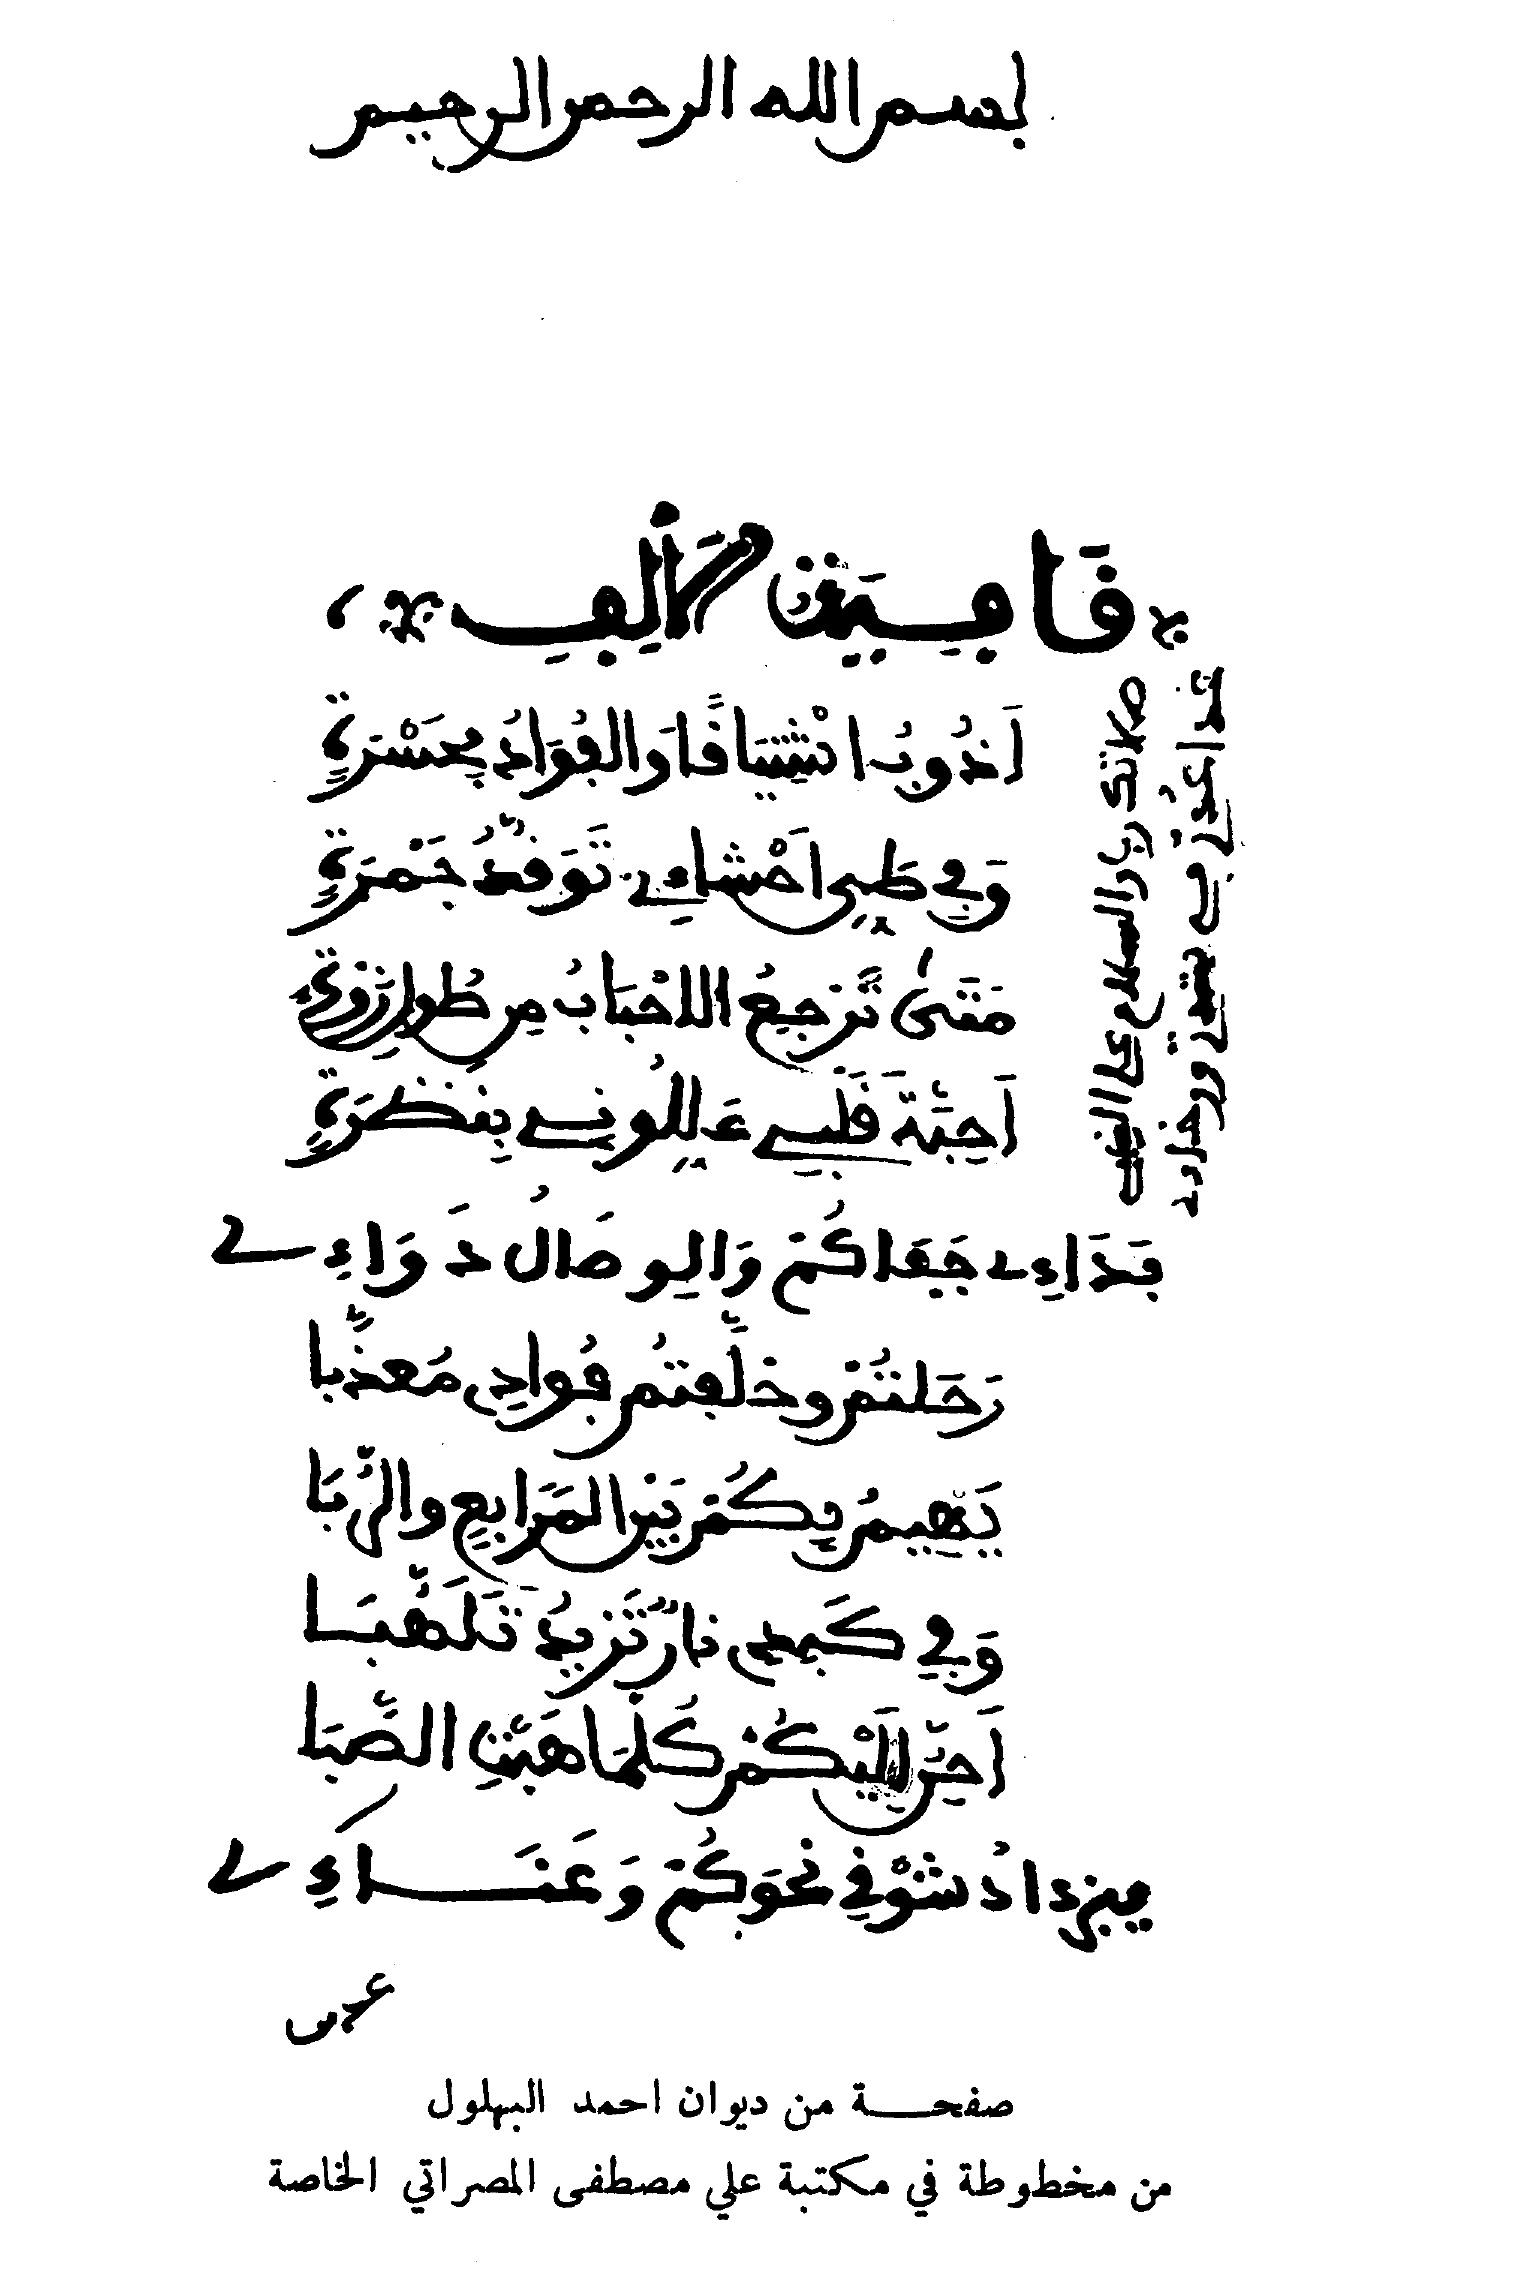 بسم الله الرحمن الرحيم
قافية الألف
أَذُوبُ اشْتِيَاقًا وَالفُؤَادُ بِحَسْرَةٍ
وَفِي طَيِّ أَحْشَاءِي تَوَقُّدُ جَمْرَةٍ
مَتَى تَرْجِعُ الاحْبَابُ مِن طُولِ
أَحِبَّةَ قَلْبِي عَلِّلُونِي بِنَظْرَةٍ
فَدَاءِي جَفَاكُمْ وَالوِصَالُ دَوَاءِي
رَحَلْتُمْ وخلَّفتُم فُوادِي مُعذَّبا
يَهِيمُ بِكُمْ بَيْنَ المَرَابِعِ والرُّبَا
وَفِي كَبِدِي نارٌ تَزِيدُ تَلَهُّبَا
أَحِنُّ إِلَيْكُمْ كُلَّمَا هَبَّتِ الصَّبَا
فيزدادُ شَوْقِي نحْوَكُمْ وَعَنَاءِي
صلاتك ربي والسلام على النبي
صفحة من ديوان احمد البهلول
من مخطوطة في مكتبة علي مصطفى المصراتي الخاصة